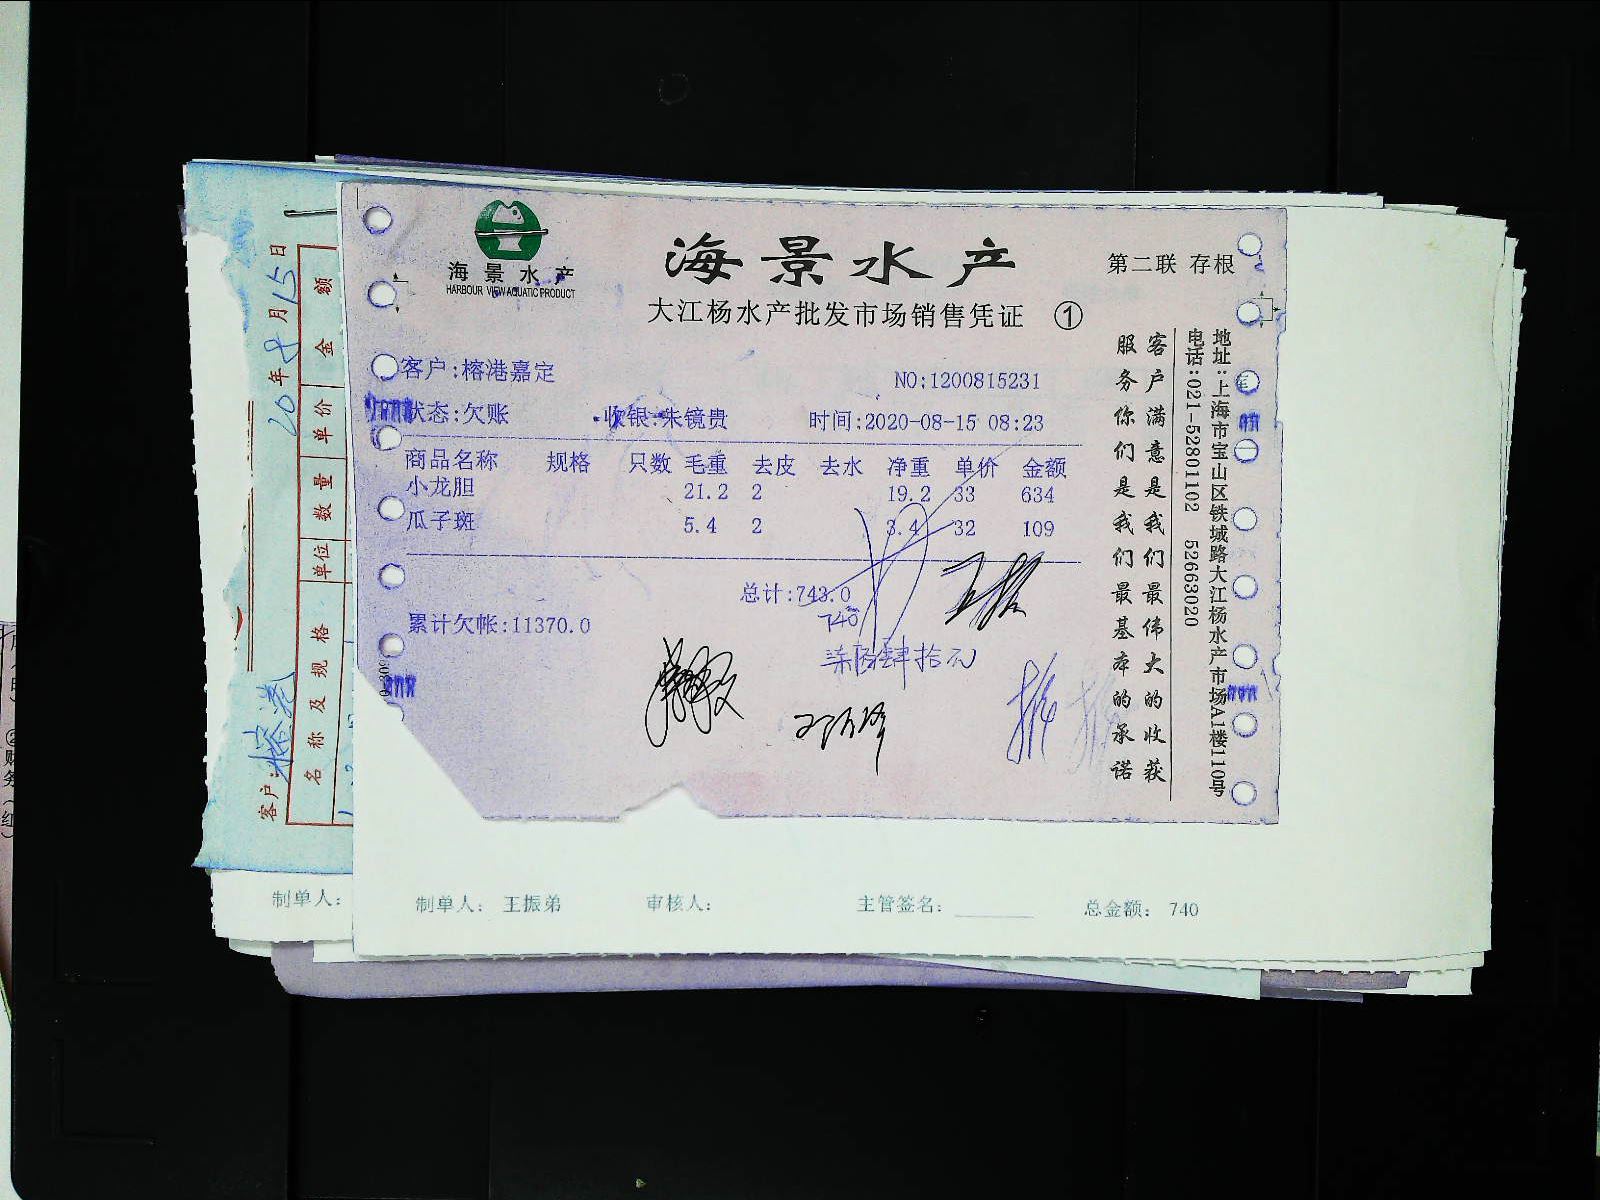 海景水产
HARBOUR VIEW AQUATIC PRODUCT
海景水产
第二联 存根
大江杨水产批发市场销售凭证 ①
客户:榕港嘉定
NO:1200815231
状态:欠账 收银:朱镜贵 时间:2020-08-15 08:23
商品名称 规格 只数 毛重 去皮 去水 净重 单价 金额
小龙胆 21.2 2 19.2 33 634
瓜子斑 5.4 2 3.4 32 109
总计:743.0
740
累计欠帐:11370.0
柒佰肆拾元
客户满意是我们最伟大的收获
服务你们是我们最基本的承诺
地址:上海市宝山区铁城路大江杨水产市场A1楼110号
电话:021-52801102 52663020
20年8月15日
客户:榕港
名称及规格 单位 数量 单价 金额
制单人:
制单人: 王振弟 审核人: 主管签名: 总金额: 740